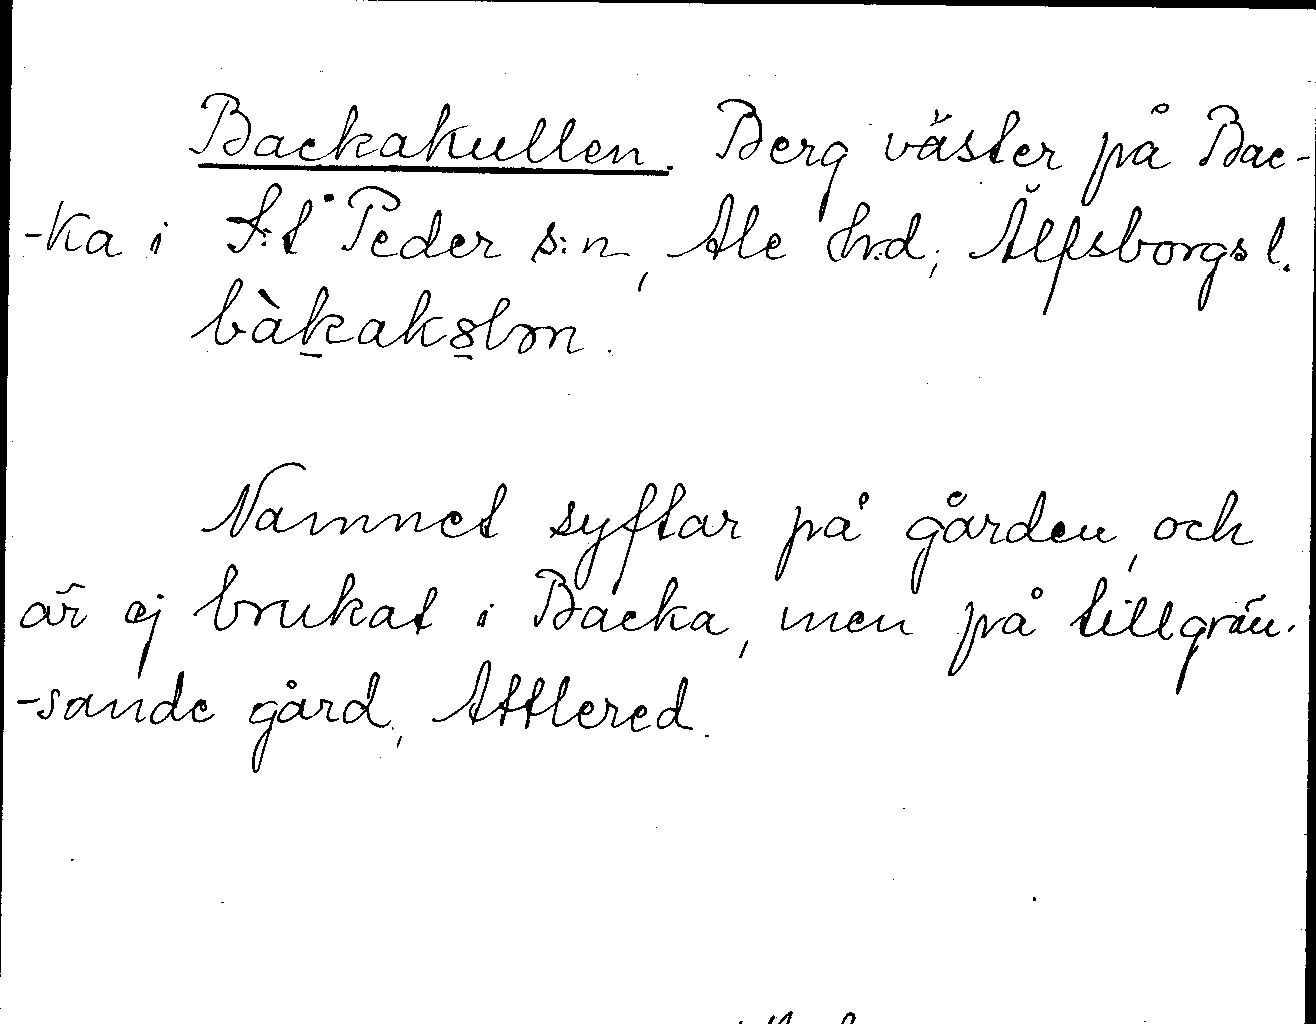 Backakullen. Berg väster på Bac-
-ka i S:t Peder s:n, Ale h:d, Älfsborgs l.
bàk̠ako̠lən.
Namnet syftar på gården, och
är ej brukat i Backa, men på tillgrän-
-sande gård, Attlered.